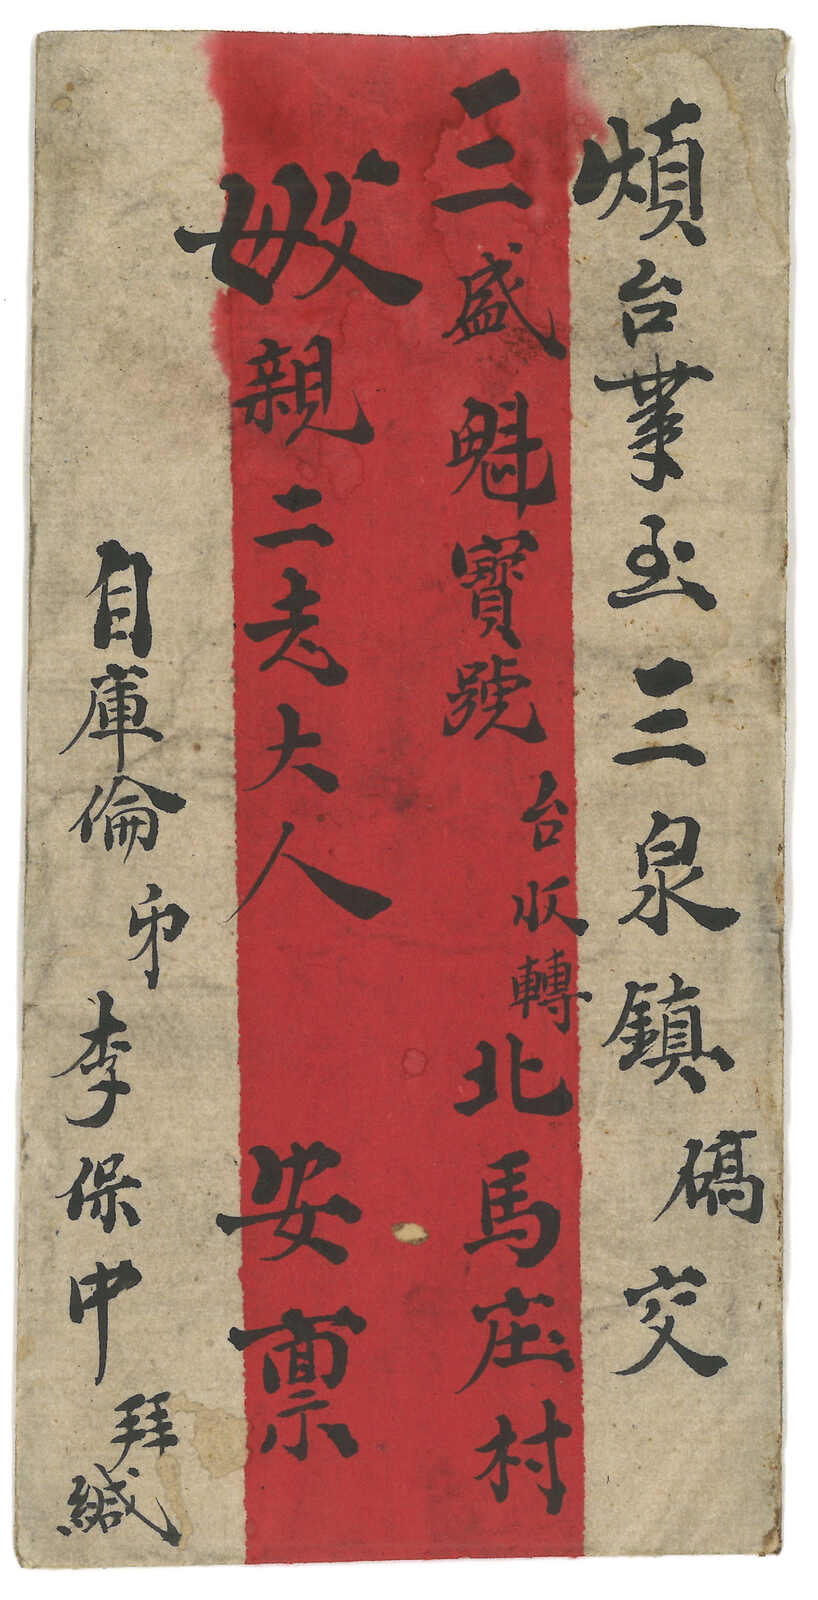 煩台業至三泉鎮碼交
三盛魁寳號台收轉北馬庄村
父母親二老大人 安禀
自庫倫弟李保中拜緘